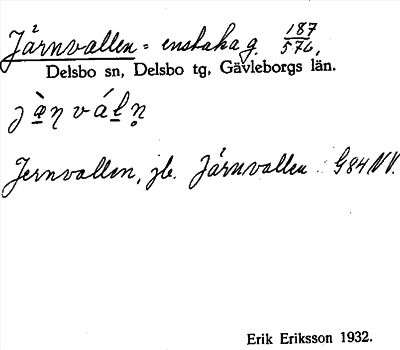 Järnvallen = enstaka g. 187/576,
Delsbo sn, Delsbo tg, Gävleborgs län.
Jernvallen, jb. Järnvallen G84NV.
Erik Eriksson 1932.